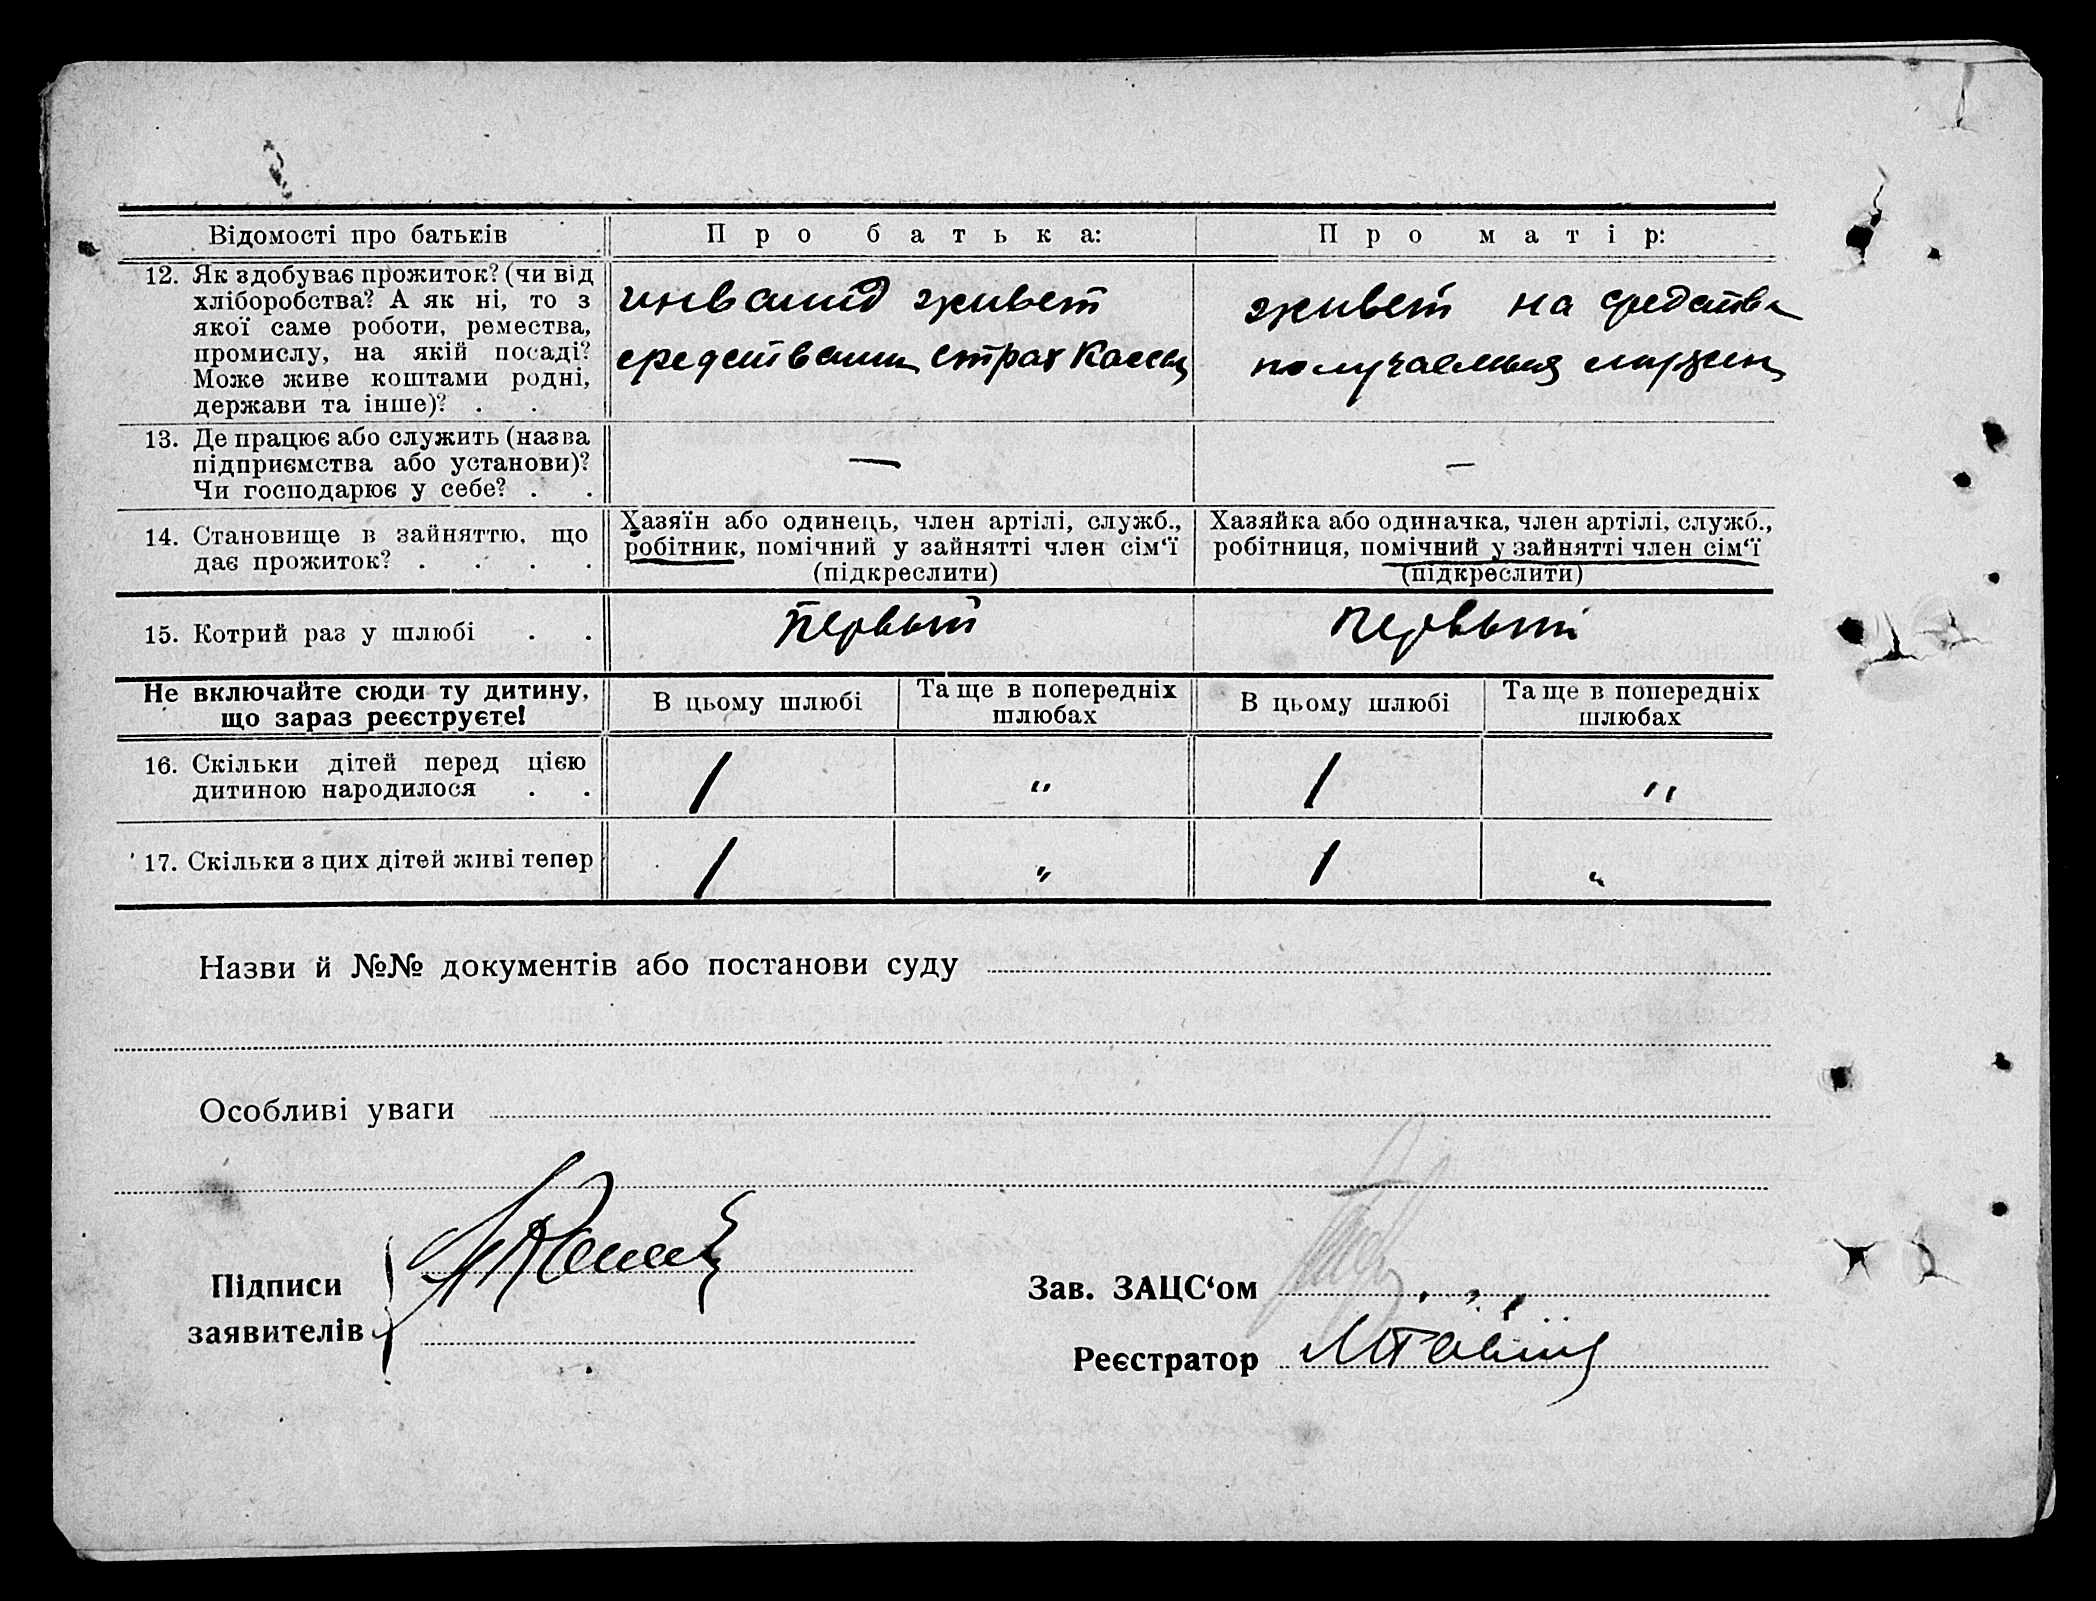 Відомості про батьків
Про батька:
Про матір:
12. Як здобуває прожиток? (чи від
хліборобства? А як ні, то з
якої саме роботи, ремества,
промислу, на якій посаді?
Може живе коштами родні,
держави та інше)? . .
инвалид живет
средствами страх Кассы
живет на средства
получаемыя
13. Де працює або служить (назва
підприємства або установи)?
Чи господарює у себе? . .
—
—
14. Становище в зайняттю, що
дає прожиток? . . . .
Хазяїн або одинець, член артілі, служб.,
робітник, помічний у зайнятті член сім‘ї
(підкреслити)
Хазяйка або одиначка, член артілі, служб.,
робітниця, помічний у зайнятті член сім‘ї
(підкреслити)
15. Котрий раз у шлюбі . .
Первый
Первый
Не включайте сюди ту дитину,
що зараз реєструєте!
В цьому шлюбі
Та ще в попередніх
шлюбах
В цьому шлюбі
Та ще в попередніх
шлюбах
16. Скільки дітей перед цією
дитиною народилося . .
1
"
1
"
17. Скільки з цих дітей живі тепер
1
"
1
"
Назви й №№ документів або постанови суду
Особливі уваги
Підписи
заявителів
Зав. ЗАЦС‘ом
Реєстратор